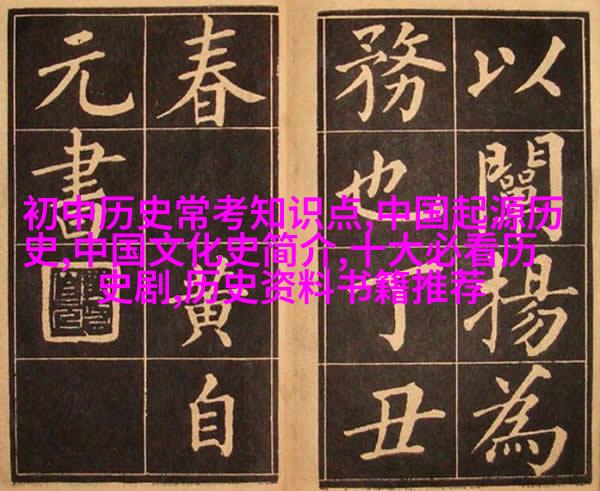 初中历史常考知识点,中国起源历
史,中国文化史简介,十大必看历
史剧,历史资料书籍推荐
以闡揚為
務也丁丑
春黄自
元書